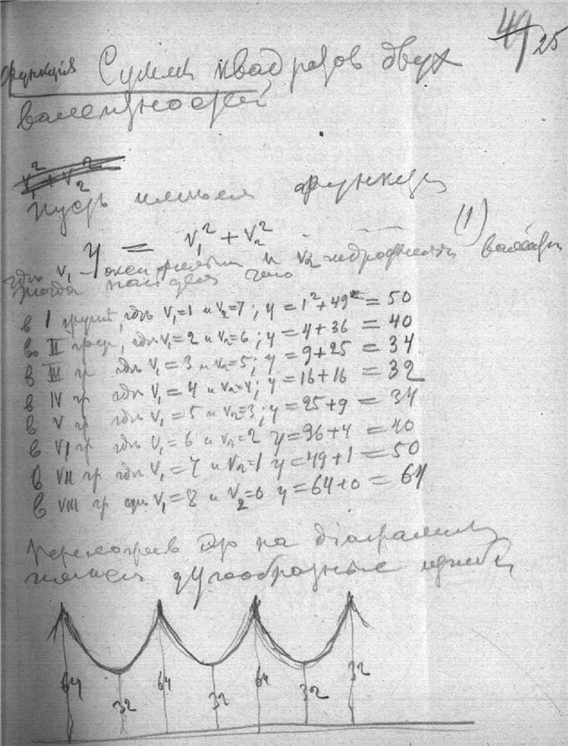 49/25
функція Сумма квадратов двух
валентностей
v₁² + v₂²
Пусть имеем функцію
y = v₁² + v₂² (1)
где v₁ и v₂
тогда найдем что
в I групп, где v₁=1 и v₂=7; y = 1²+49² = 50
во II груп, где v₁=2 и v₂=6; y = 4+36 = 40
в III гр где v₁=3 и v₂=5; y = 9+25 = 34
в IV гр где v₁=4 и v₂=4; y = 16+16 = 32
в V гр где v₁=5 и v₂=3; y = 25+9 = 34
в VI гр где v₁=6 и v₂=2 y = 36+4 = 40
в VII гр где v₁=7 и v₂=1 y = 49+1 = 50
в VIII гр где v₁=8 и v₂=0 y = 64+0 = 64
на діаграмме
дугообразные
64 32 64 32 64 32 32